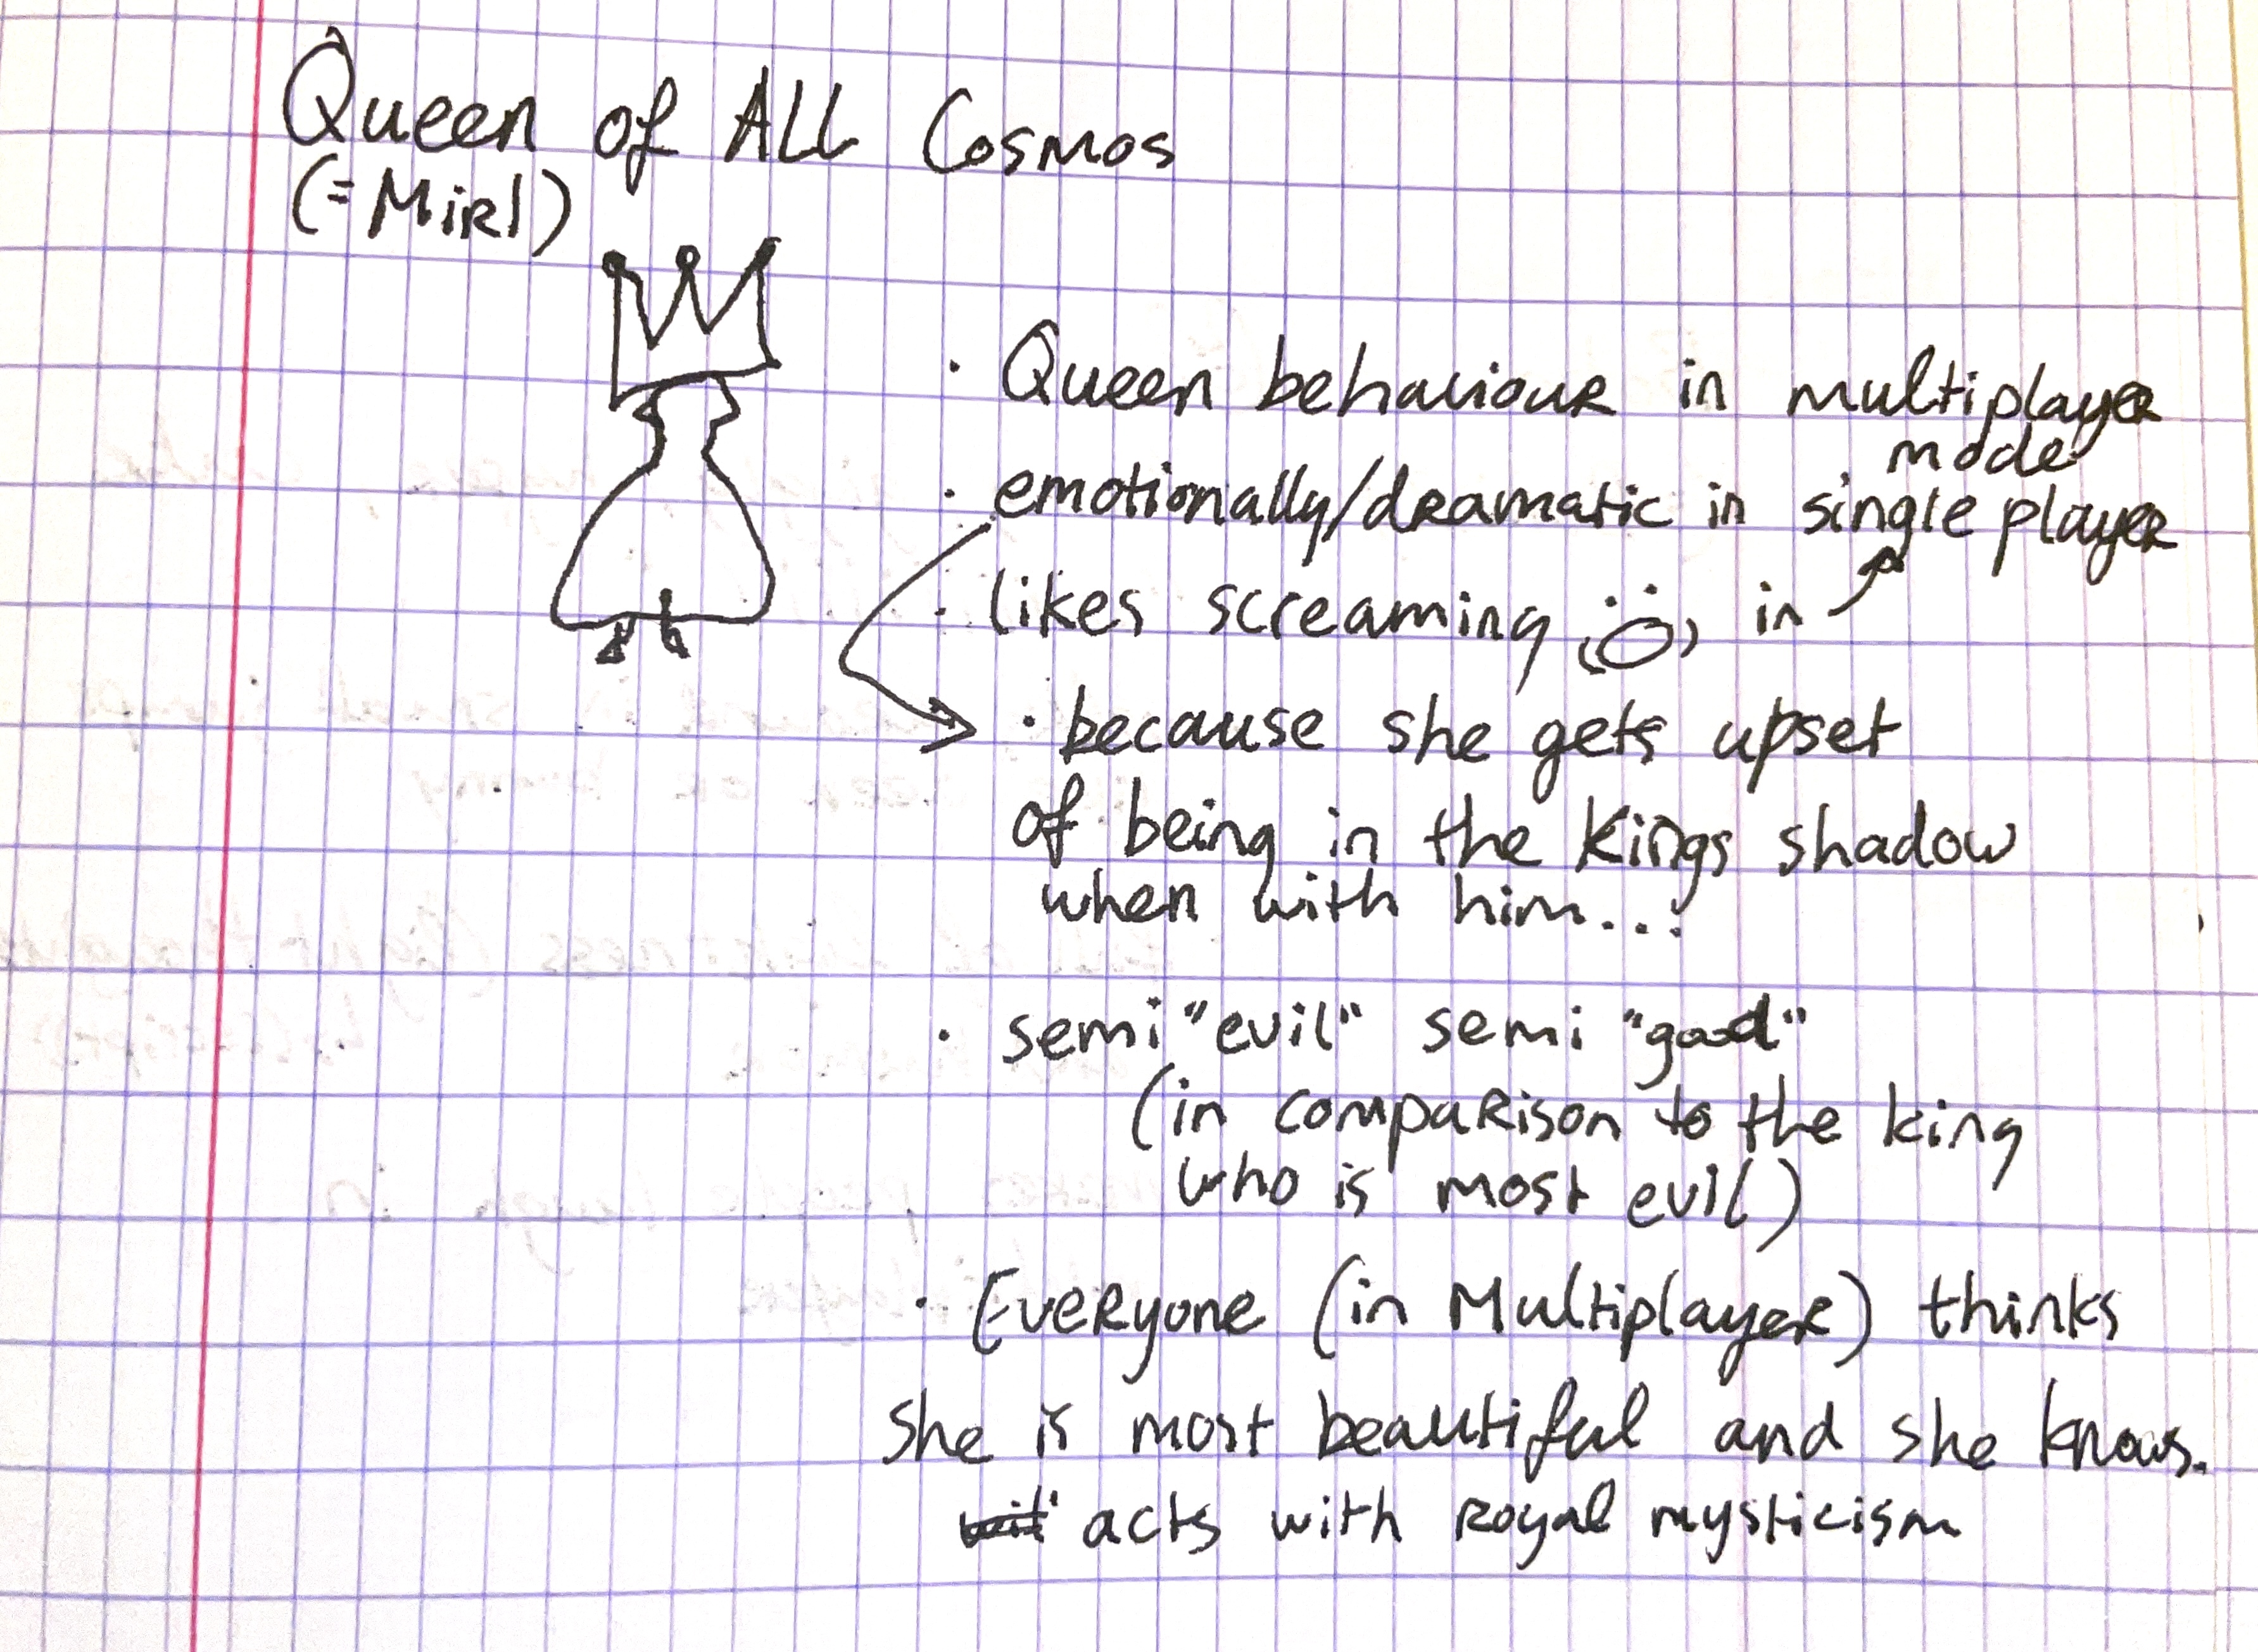 Queen of ALL Cosmos
(=Mirl)
· Queen behaviour in multiplayer
mode
· emotionally/dramatic in single player
· likes screaming in
· because she gets upset
of being in the Kings shadow
when with him...
· semi "evil" semi "good"
(in comparison to the king
who is most evil)
· Everyone (in Multiplayer) thinks
she is most beautiful and she knows.
acts with royal mysticism